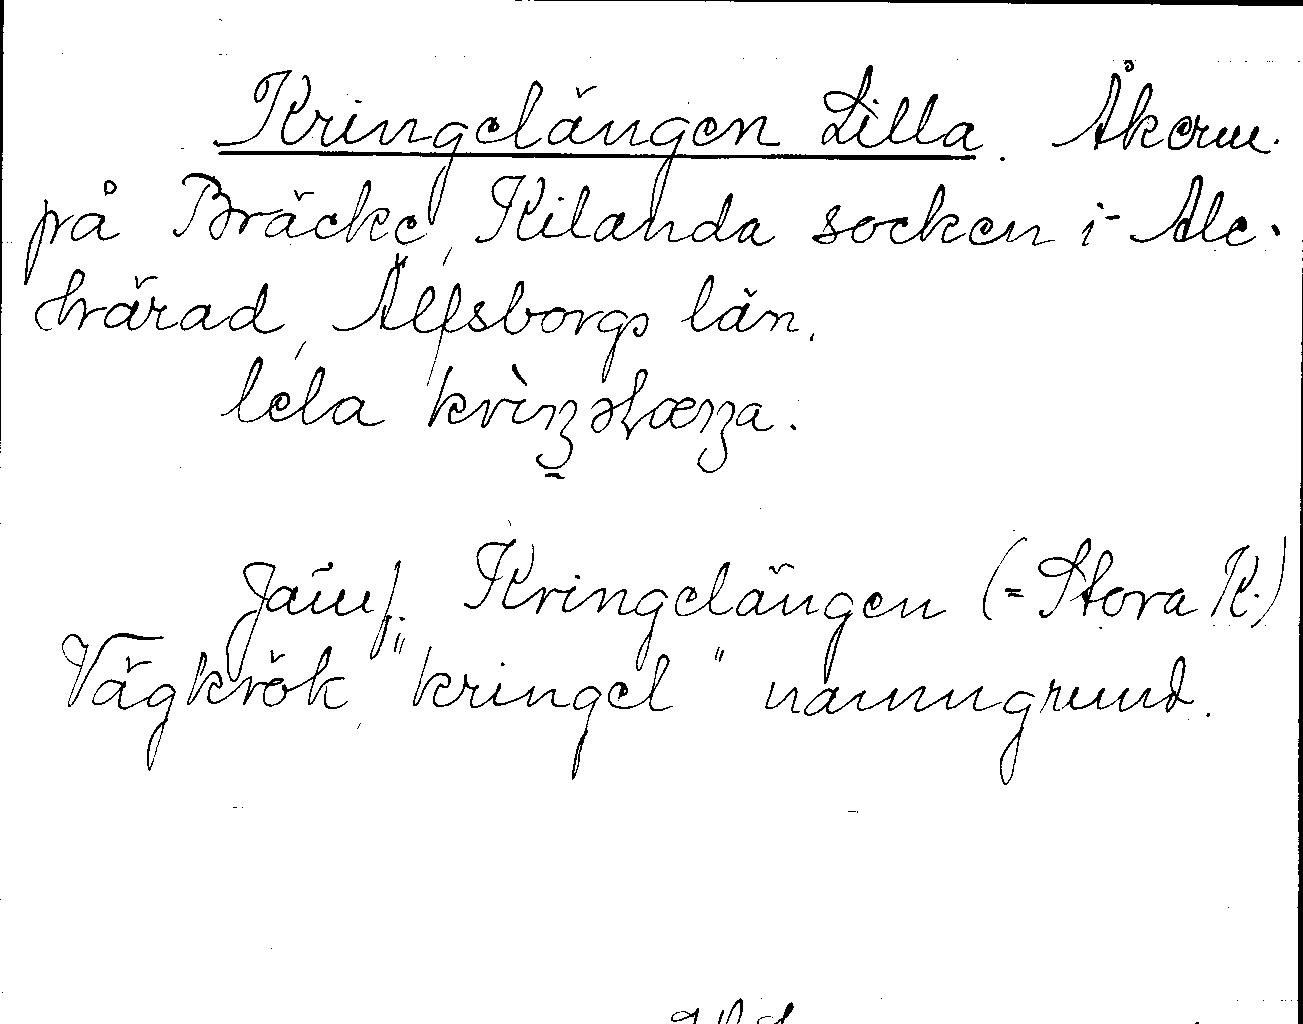 Kringelängen Lilla. Åkerm.
på Bräcke, Kilanda socken i Ale-
härad, Älfsborgs län.
lela krìŋəlæŋa.
Jämf. Kringelängen (= Stora K.)
Vägkrök, "kringel" namngrund.